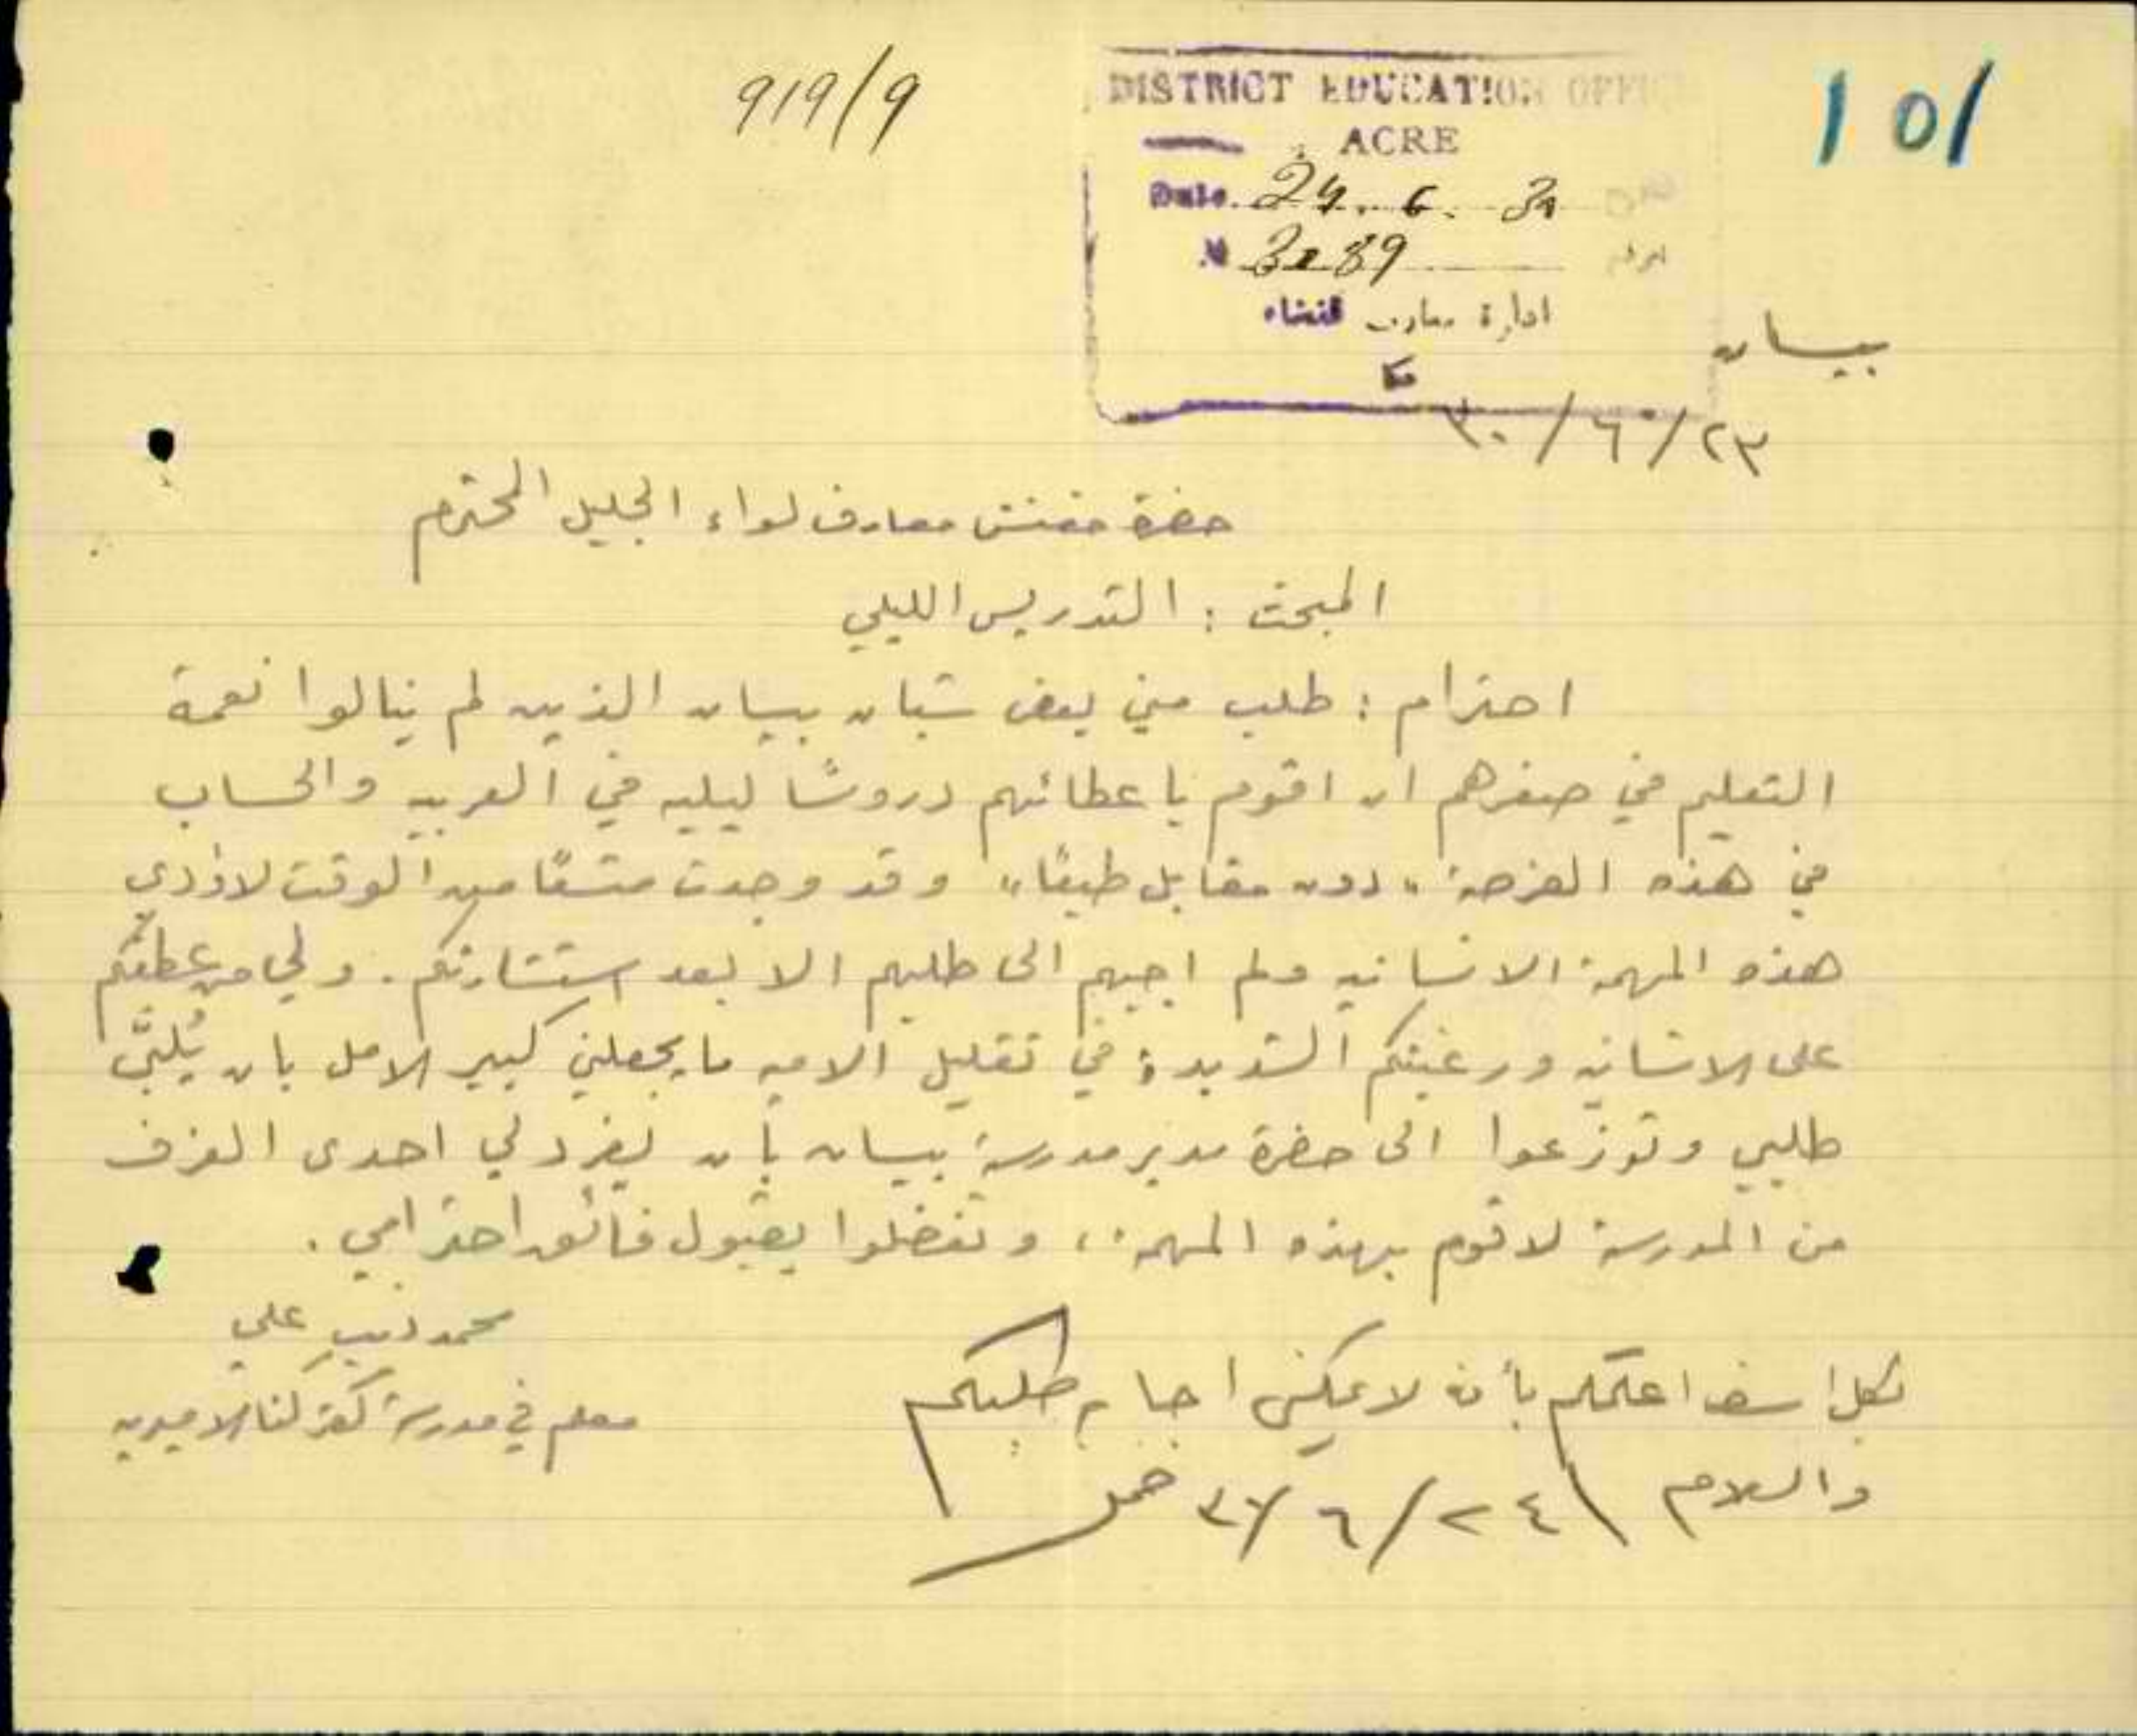 919/9
101
DISTRICT EDUCATION OFFICE
ACRE
Date. 24. 6. 30
N 3189
ادارة معارف قضاء
عكا
بيسان
٢٣/٦/٣٠
حضرة مفتش معارف لواء الجليل المحترم
المبحث : التدريس الليلي
احترام : طلب مني بعض شبان بيسان الذين لم ينالوا نعمة
التعليم في صغرهم ان اقوم باعطائهم دروسًا ليليه في العربيه والحساب
في هذه الفرصة "دون مقابل طبعًا" وقد وجدت متسعًا من الوقت لاؤدي
هذه المهمة الانسانيه ولم اجبهم الى طلبهم الا بعد استشارتكم. ولي من عطفكم
على الانسانيه ورغبتكم الشديدة في تقليل الاميه ما يجعلني كبير الامل بان يُلبَّى
طلبي وتوزعوا الى حضرة مدير مدرسة بيسان بأن يفرد لي احدى الغرف
من المدرسة لاقوم بهذه المهمة، وتفضلوا بقبول فائق احترامي.
محمد ذيب علي
معلم في مدرسة كفر كنا الاميريه
بكل اسف اعلمكم بأنه لا يمكنني اجابة طلبكم
والسلام ٢٤/٦/٣٠